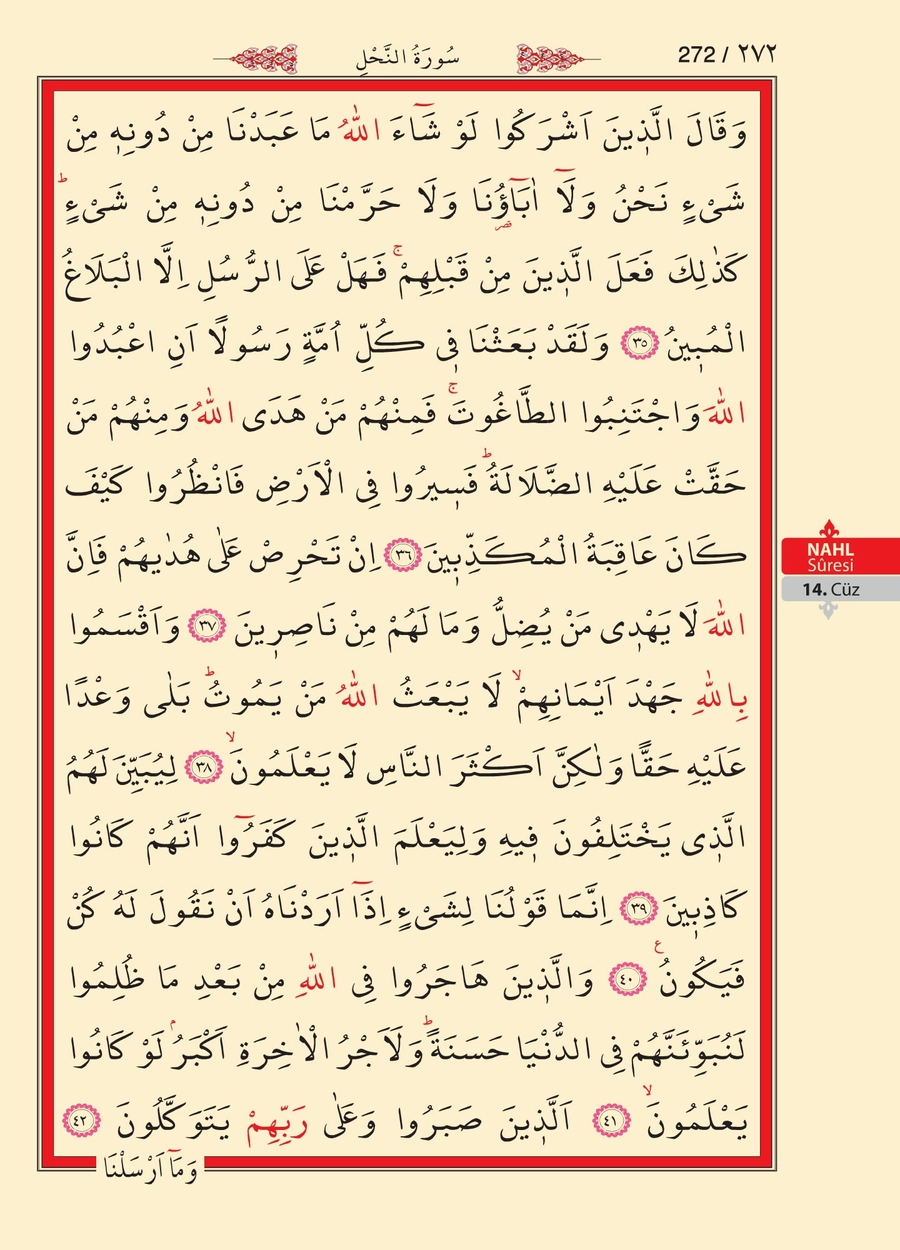 272 / ٢٧٢
سُورَةُ النَّحْلِ
وَقَالَ الَّذ۪ينَ اَشْرَكُوا لَوْ شَٓاءَ اللّٰهُ مَا عَبَدْنَا مِنْ دُونِه۪ مِنْ
شَيْءٍ نَحْنُ وَلَٓا اٰبَٓاؤُ۬نَا وَلَا حَرَّمْنَا مِنْ دُونِه۪ مِنْ شَيْءٍۜ
كَذٰلِكَ فَعَلَ الَّذ۪ينَ مِنْ قَبْلِهِمْۚ فَهَلْ عَلَى الرُّسُلِ اِلَّا الْبَلَاغُ
الْمُب۪ينُ ﴿٣٥﴾ وَلَقَدْ بَعَثْنَا ف۪ي كُلِّ اُمَّةٍ رَسُولًا اَنِ اعْبُدُوا
اللّٰهَ وَاجْتَنِبُوا الطَّاغُوتَۚ فَمِنْهُمْ مَنْ هَدَى اللّٰهُ وَمِنْهُمْ مَنْ
حَقَّتْ عَلَيْهِ الضَّلَالَةُۜ فَس۪يرُوا فِي الْاَرْضِ فَانْظُرُوا كَيْفَ
كَانَ عَاقِبَةُ الْمُكَذِّب۪ينَ ﴿٣٦﴾ اِنْ تَحْرِصْ عَلٰى هُدٰيهُمْ فَاِنَّ
اللّٰهَ لَا يَهْد۪ي مَنْ يُضِلُّ وَمَا لَهُمْ مِنْ نَاصِر۪ينَ ﴿٣٧﴾ وَاَقْسَمُوا
بِاللّٰهِ جَهْدَ اَيْمَانِهِمْۙ لَا يَبْعَثُ اللّٰهُ مَنْ يَمُوتُۜ بَلٰى وَعْدًا
عَلَيْهِ حَقًّا وَلٰكِنَّ اَكْثَرَ النَّاسِ لَا يَعْلَمُونَۙ ﴿٣٨﴾ لِيُبَيِّنَ لَهُمُ
الَّذ۪ي يَخْتَلِفُونَ ف۪يهِ وَلِيَعْلَمَ الَّذ۪ينَ كَفَرُٓوا اَنَّهُمْ كَانُوا
كَاذِب۪ينَ ﴿٣٩﴾ اِنَّمَا قَوْلُنَا لِشَيْءٍ اِذَٓا اَرَدْنَاهُ اَنْ نَقُولَ لَهُ كُنْ
فَيَكُونُ۟ ﴿٤٠﴾ وَالَّذ۪ينَ هَاجَرُوا فِي اللّٰهِ مِنْ بَعْدِ مَا ظُلِمُوا
لَنُبَوِّئَنَّهُمْ فِي الدُّنْيَا حَسَنَةًۜ وَلَاَجْرُ الْاٰخِرَةِ اَكْبَرُۢ لَوْ كَانُوا
يَعْلَمُونَۙ ﴿٤١﴾ اَلَّذ۪ينَ صَبَرُوا وَعَلٰى رَبِّهِمْ يَتَوَكَّلُونَ ﴿٤٢﴾
وَمَٓا اَرْسَلْنَا
NAHL
Sûresi
14. Cüz